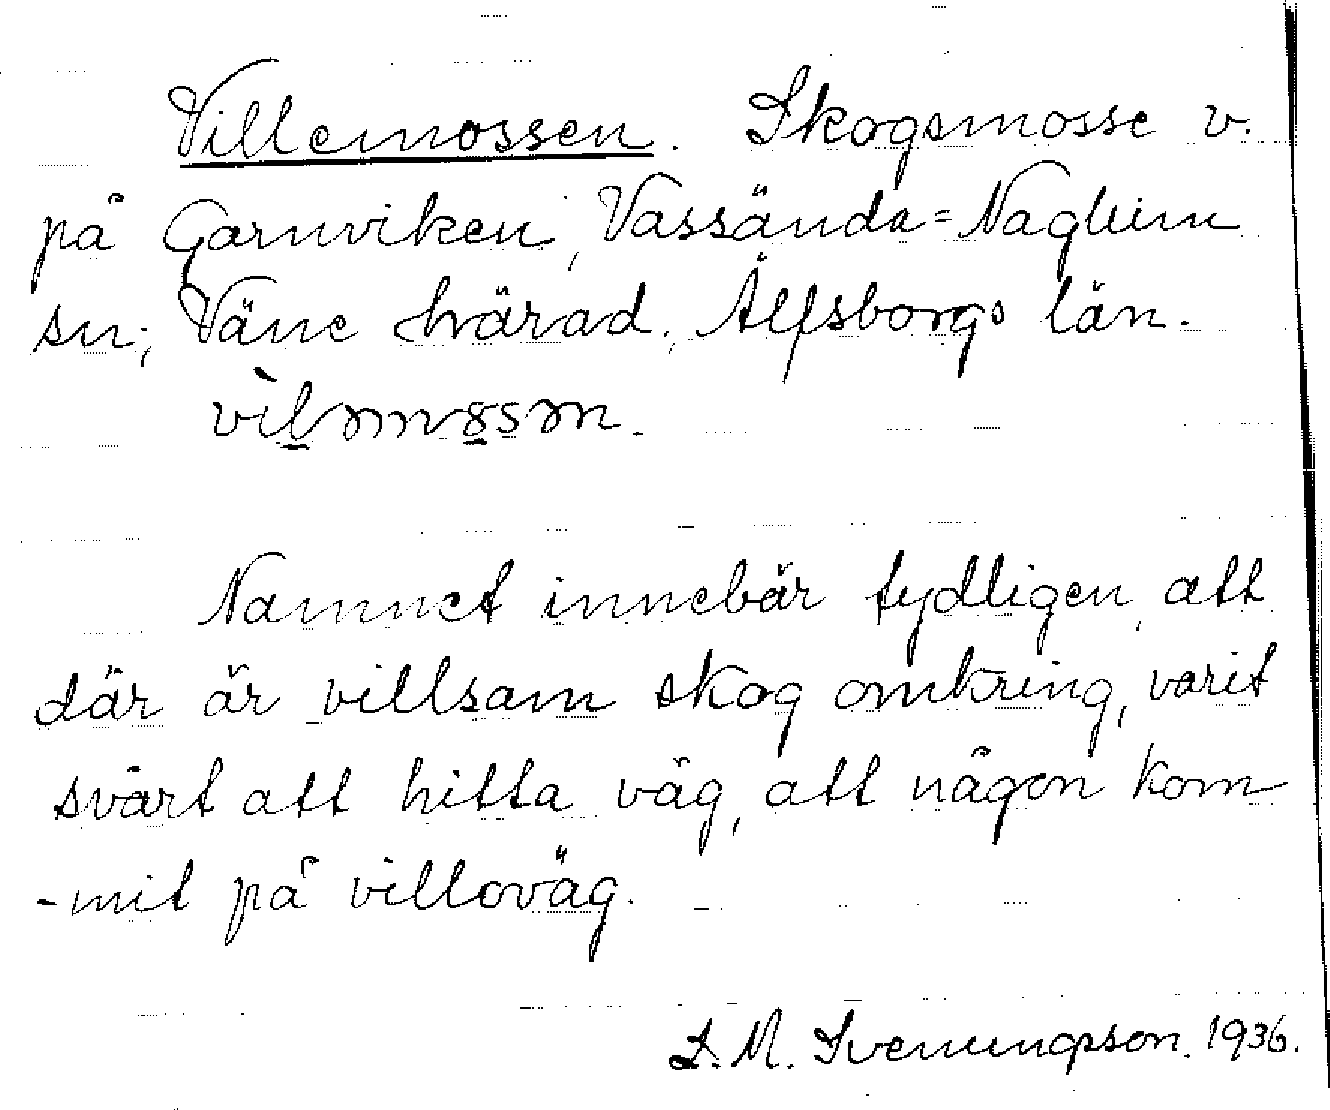 Villemossen. Skogsmosse v.
på Garnviken, Vassända=Naglum
sn; Väne härad, Älfsborgs län.
vìləmɷsən.
Namnet innebär tydligen, att
där är villsam skog omkring, varit
svårt att hitta väg, att någon kom
-mit på villoväg.
S. M. Svenungsson. 1936.